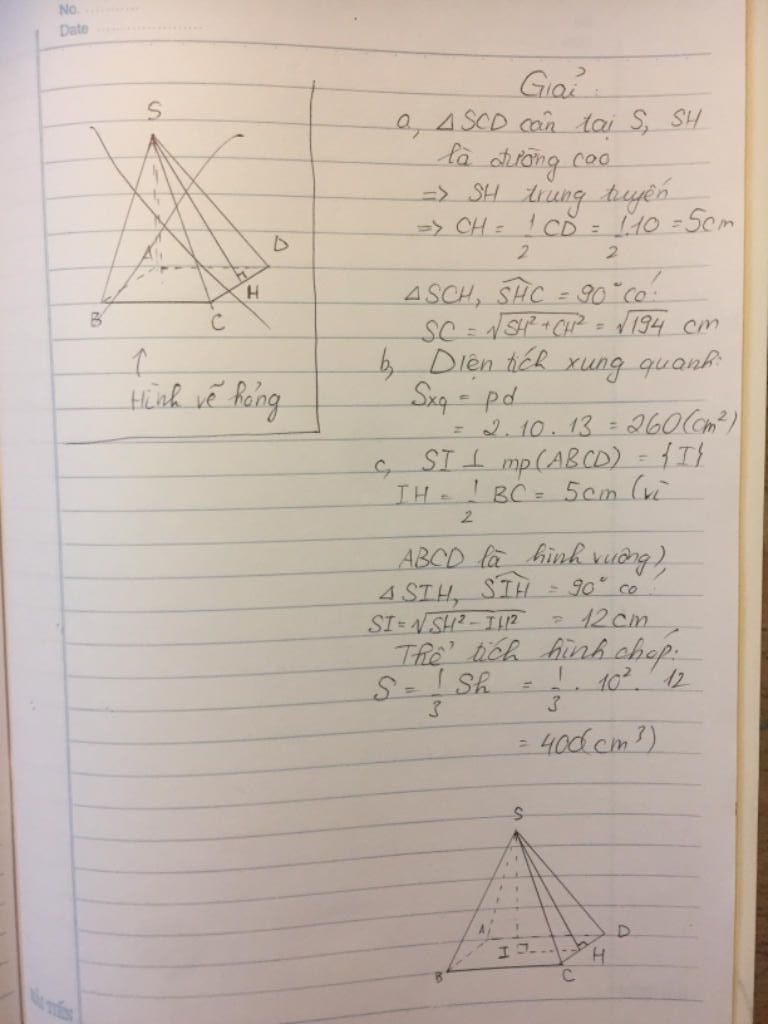 No. ..........
Date ....................
S
A
D
B
C
H
↑
Hình vẽ hỏng
Giải:
a, △SCD cân tại S, SH
là đường cao
=> SH trung tuyến
=> CH = 1/2 CD = 1/2 . 10 = 5cm
△SCH, SHC = 90° có:
SC = √SH² + CH² = √194 cm
b, Diện tích xung quanh:
Sxq = pd
= 2.10.13 = 260(cm²)
c, SI ⊥ mp(ABCD) = {I}
IH = 1/2 BC = 5cm (vì
ABCD là hình vuông)
△SIH, SIH = 90° có:
SI = √SH² - IH² = 12cm
Thể tích hình chóp:
S = 1/3 Sh = 1/3 . 10² . 12
= 400(cm³)
S
A
D
I
H
B
C